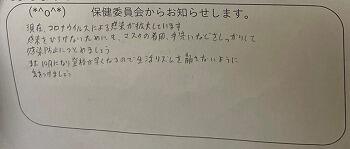 (*^o^*) 保健委員会からお知らせします。
現在、コロナウイルスによる感染が拡大しています
感染をひろげないためにも、マスクの着用、手洗いなどをしっかりして
感染防止につとめましょう
また10月になり登校が早くなるので生活リズムを崩さないように
気をつけましょう